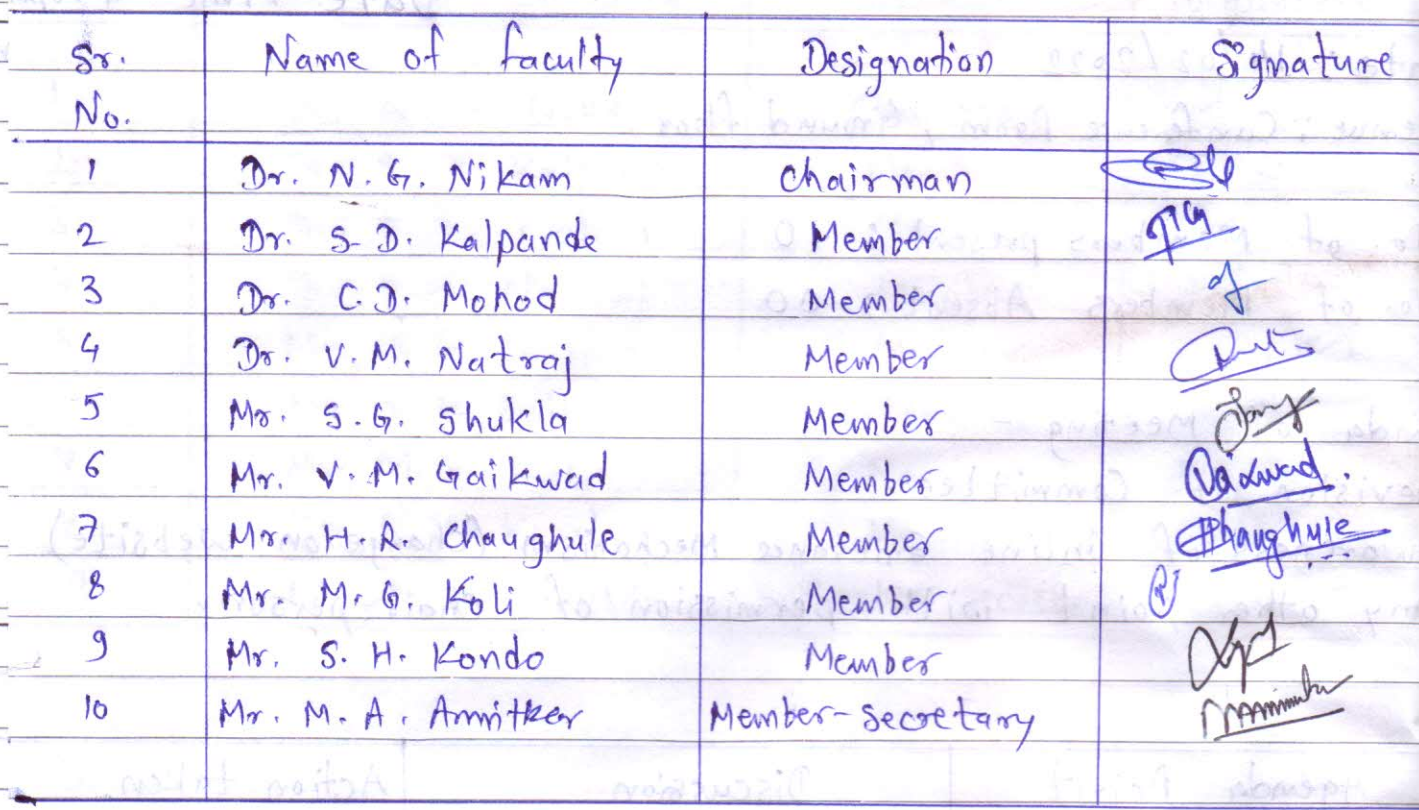 Sr. Name of faculty Designation Signature
No.
1 Dr. N. G. Nikam Chairman
2 Dr. S. D. Kalpande Member
3 Dr. C. D. Mohod Member
4 Dr. V. M. Natraj Member
5 Mr. S. G. Shukla Member
6 Mr. V. M. Gaikwad Member
7 Mr. H. R. Chaughule Member Chaughule
8 Mr. M. G. Koli Member
9 Mr. S. H. Kondo Member
10 Mr. M. A. Amritker Member-Secretary